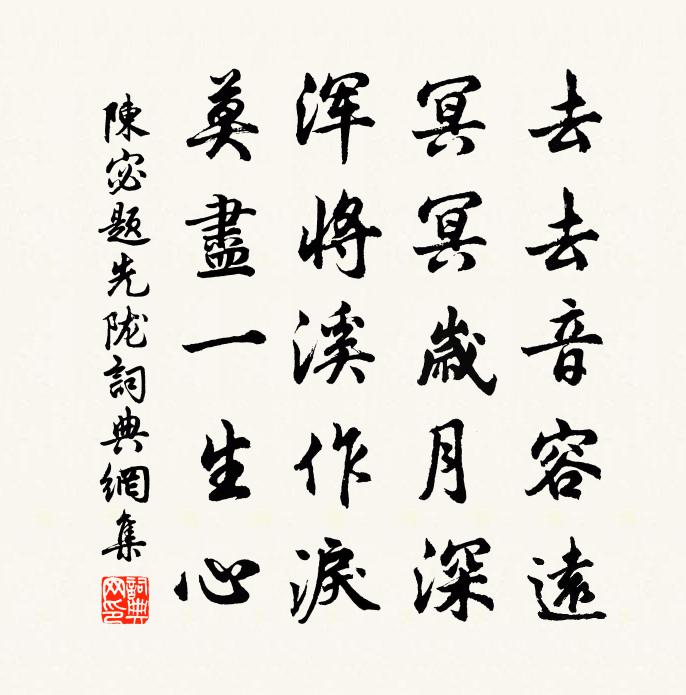 去去音容遠
冥冥歲月深
渾將溪作淚
莫盡一生心
陳宓題先陇詞典網集
詞典網印